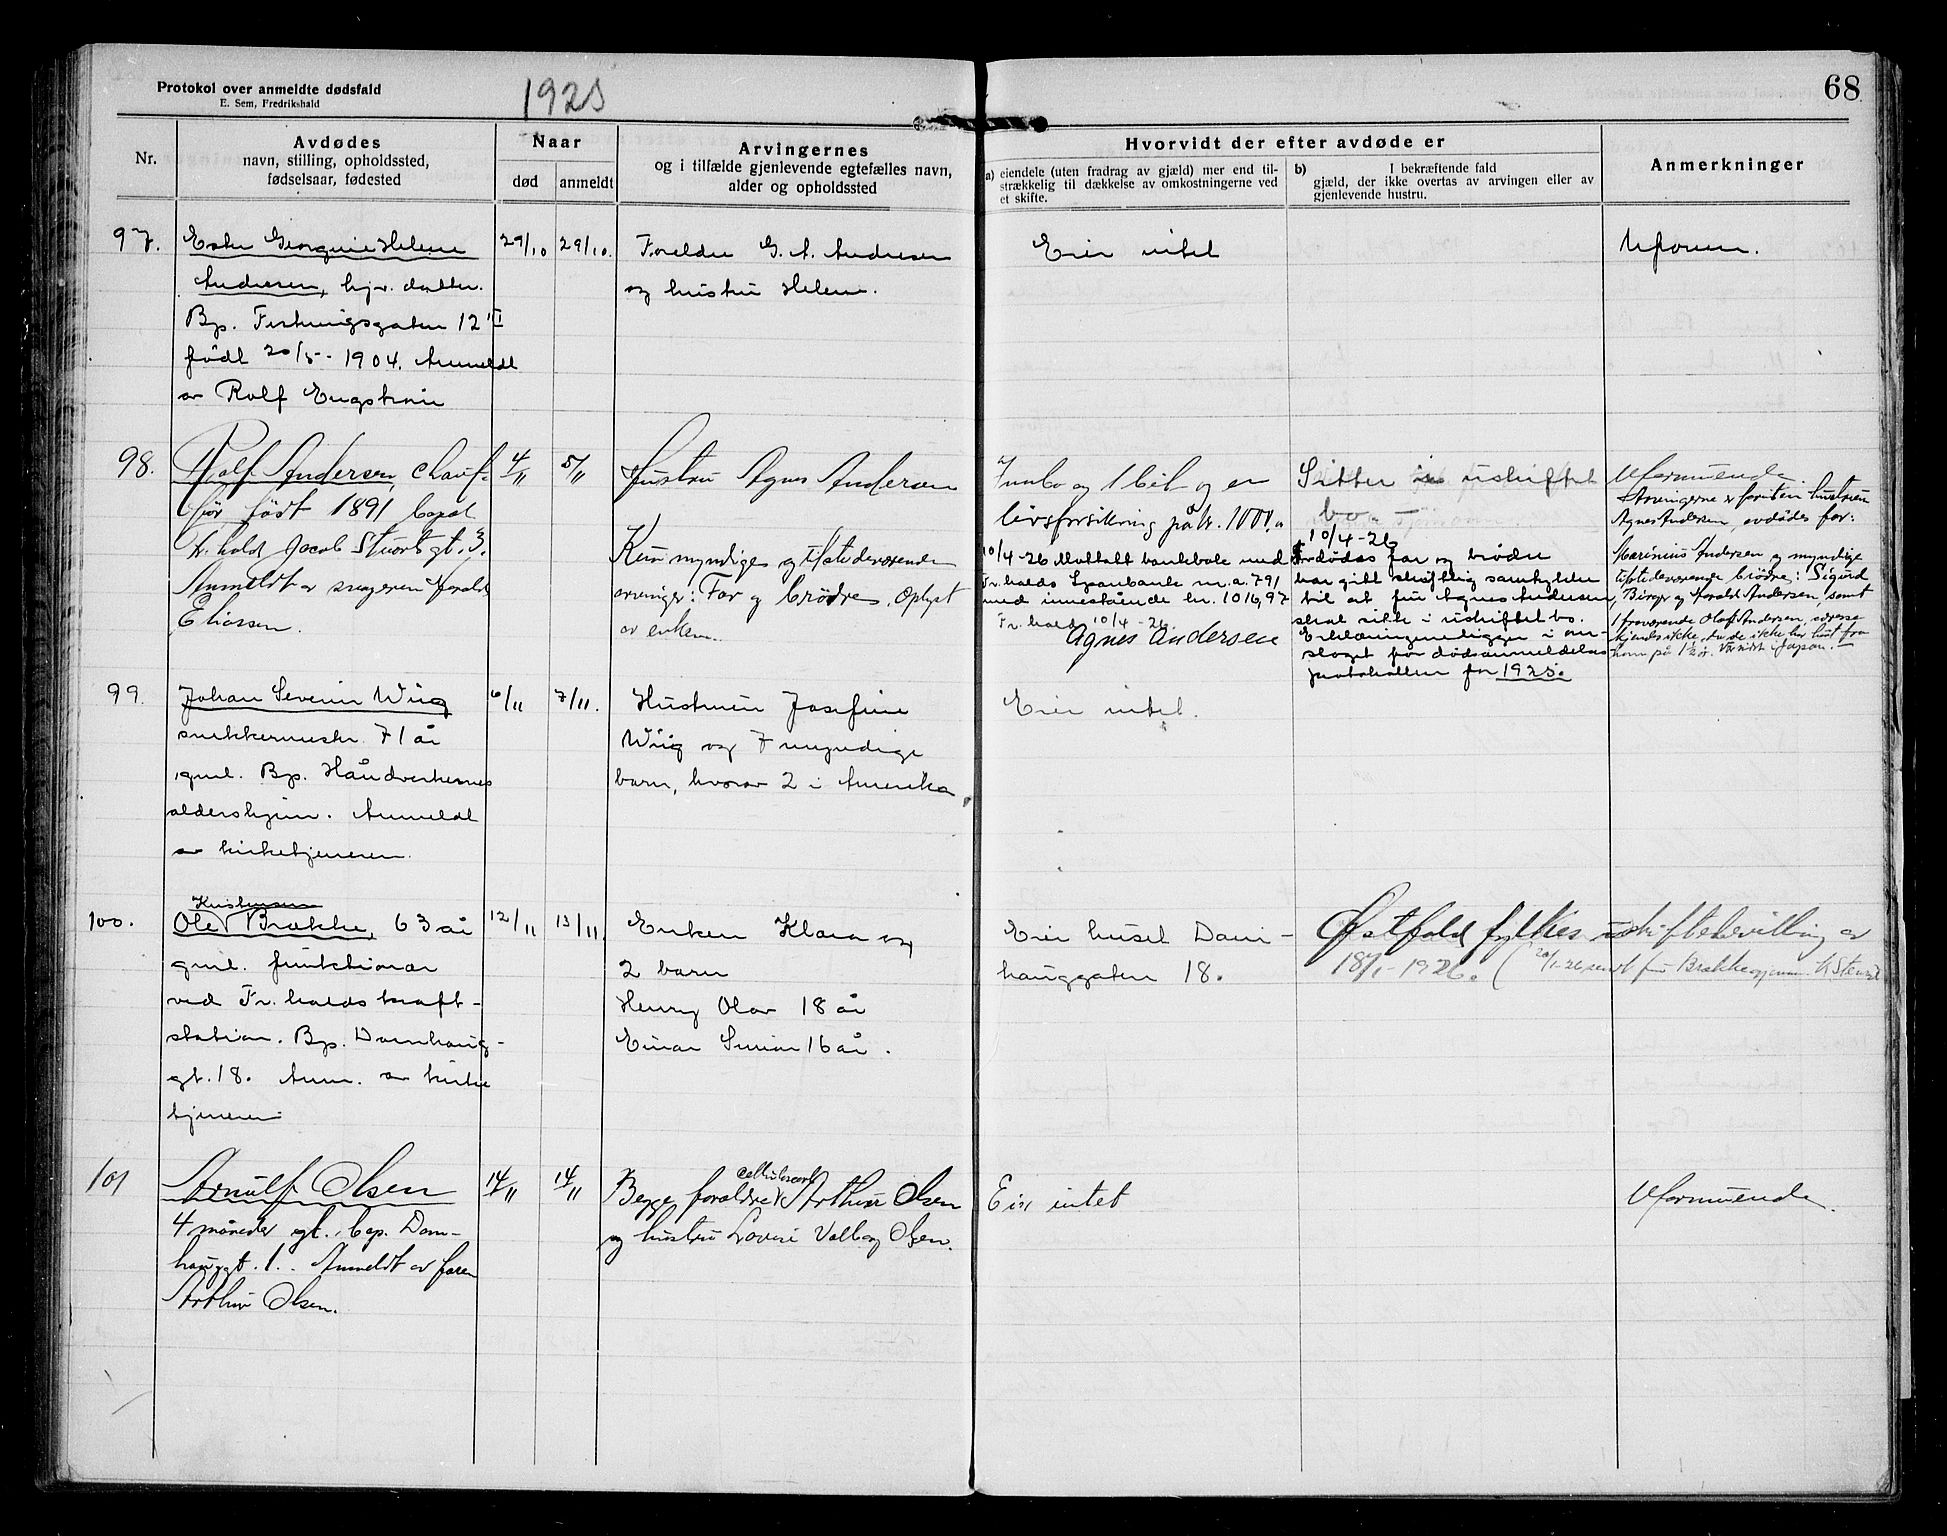 Protokol over anmeldte dødsfald
E. Sem, Fredrikshald
1925
68
Nr.
Avdødes
navn, stilling, opholdssted,
fødselsaar, fødested
Naar
død
anmeldt
Arvingernes
og i tilfælde gjenlevende egtefælles navn,
alder og opholdssted
Hvorvidt der efter avdøde er
a) eiendele (uten fradrag av gjæld) mer end til-
strækkelig til dækkelse av omkostningerne ved
et skifte.
b) I bekræftende fald
gjæld, der ikke overtas av arvingen eller av
gjenlevende hustru.
Anmerkninger
97.
Georgine Helene
Andresen, hjv. datter.
Bp. Festningsgaten 12 III
född 20/5 - 1904. Anmeldt
av Rolf Engstrøm
29/10
29/10.
Foreldre G. A. Andresen
og hustru Helene.
Eier intet
Uformu.
98.
Rolf Andersen, chauf-
før född 1891 bopæl
Fr.hald Jacob Stuartsgt. 3.
Anmeldt av svogeren Harald
Eliassen.
4/11
5/11
Hustru Agnes Andersen
Kun myndige og tilstedeværende
arvinger: Far og brødre. Oplyst
av enken.
Innbo og 1 bil og en
livsforsikring på kr. 1000.
10/4-26 Mottatt bankbok med
Fr.halds Sparebank nr. a. 791
med innestående kr. 1016,97
Fr.hald 10/4-26.
Agnes Andersen
Sitter i uskiftet
bo
10/4-26
Avdødes far og brødre
har gitt skriftlig samtykke
til at fru Agnes Andersen
skal sitte i uskiftet bo.
Erklæringene ligger i om-
slaget for dødsanmeldelses-
protokollen for 1925.
Uformuende.
Arvingerne er foruten hustruen
Agnes Andersen avdødes far:
Marinius Andersen og myndige
tilstedeværende brödre: Sigurd
Birger og Harald Andersen, samt
1 fraværende Olaf Andersen, adresse
kjendes ikke, da de ikke har hørt fra
ham på 1½ år. Var sidst i Japan.
99.
Johan Severin Wiig
snekkermestr. 71 år
gml. Bp. Håndverkernes
aldershjem. Anmeldt
av kirketjeneren.
6/11
7/11.
Hustruen Josefine
Wiig og 7 myndige
barn, hvorav 2 i Amerika.
Eier intet.
100.
Kristensen
Ole Brække, 63 år
gml. funktionær
ved Fr.halds kraft-
station. Bp. Damhaug-
gt. 18. Anm. av kirke
tjeneren
12/11
13/11.
Enken Klara og
2 barn
Henry Olav 18 år
Einar 16 år.
Eier huset Dam-
hauggaten 18.
Østfold fylkes uskiftebevilling av
18/1-1926. (20/1-26 sendt fru Brække gjennem
101
Arnulf Olsen
4 måneder gl. bop. Dam-
hauggt. 1. Anmeldt av faren
Arthur Olsen.
14/11
14/11
Begge foreldre Arthur Olsen
og hustru Lovise Valborg Olsen.
Eier intet
Uformuende.